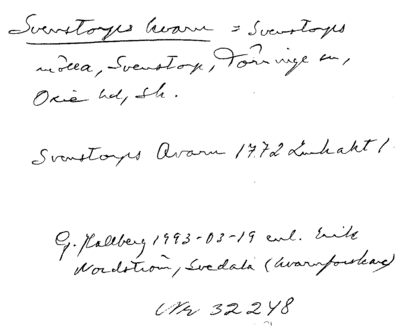 Svenstorps kvarn = Svenstorps
mölla, Svenstorp, Törringe sn,
Oxie hd, Sk.
Svenstorps Qvarn 1772 Lmhakt 1
G. Hallberg 1993-03-19 enl. Erik
Nordström, Svedala (kvarnforskare)
Nr 32248